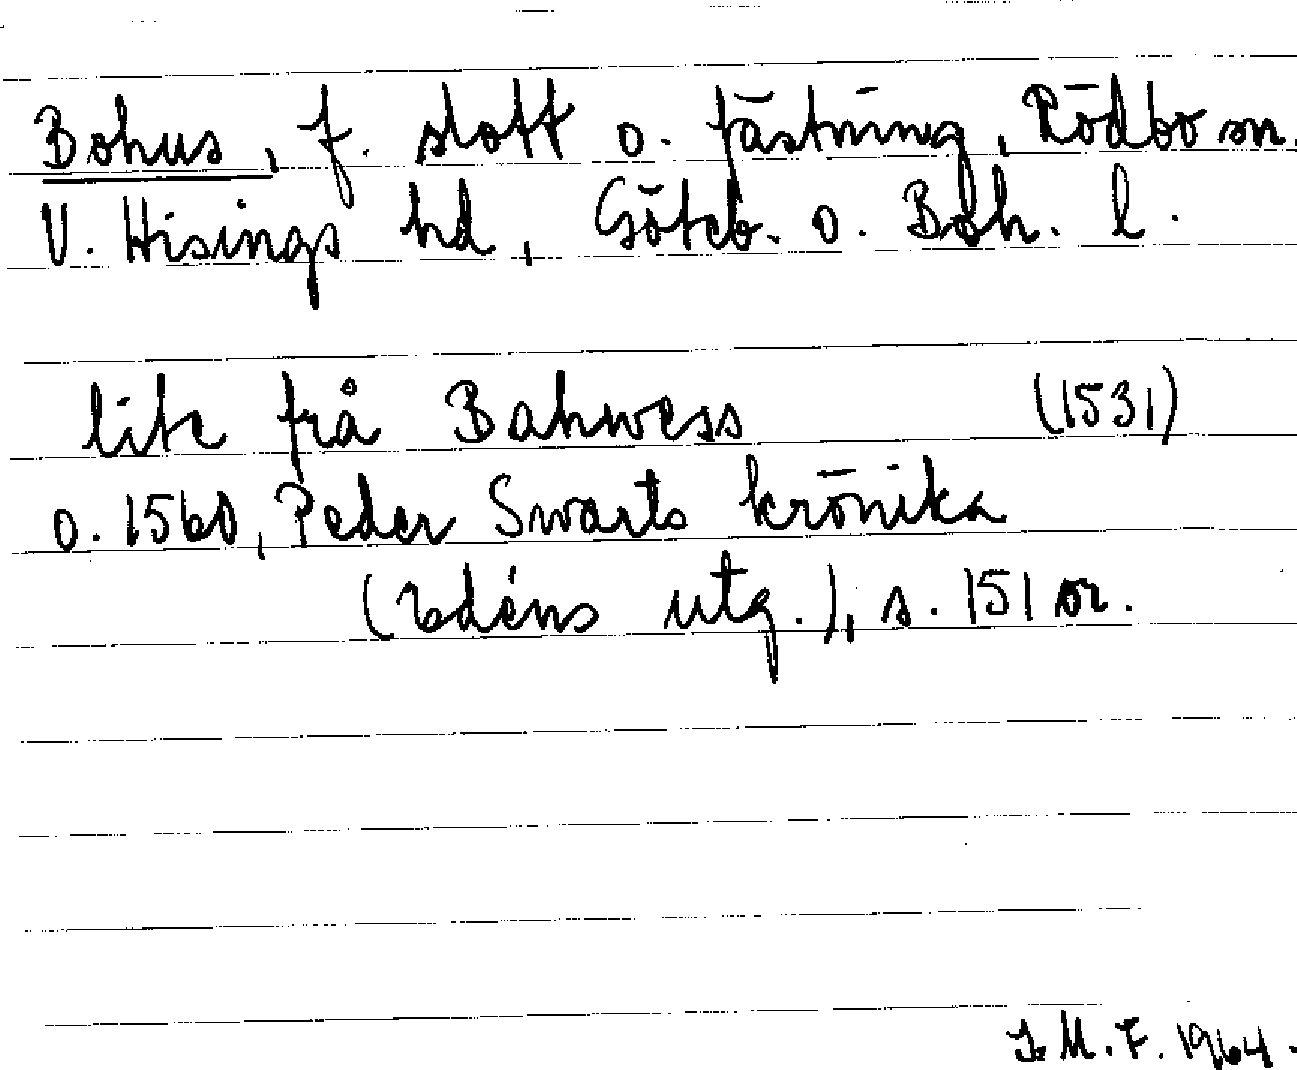 Bohus, f. slott o. fästning, Rödbo sn.
V. Hisings hd, Göteb. o. Boh. l.
lite frå Bahwess (1531)
o. 1560, Peder Swarts krönika
(Edéns utg.), s. 151 or.
J. M. F. 1964.